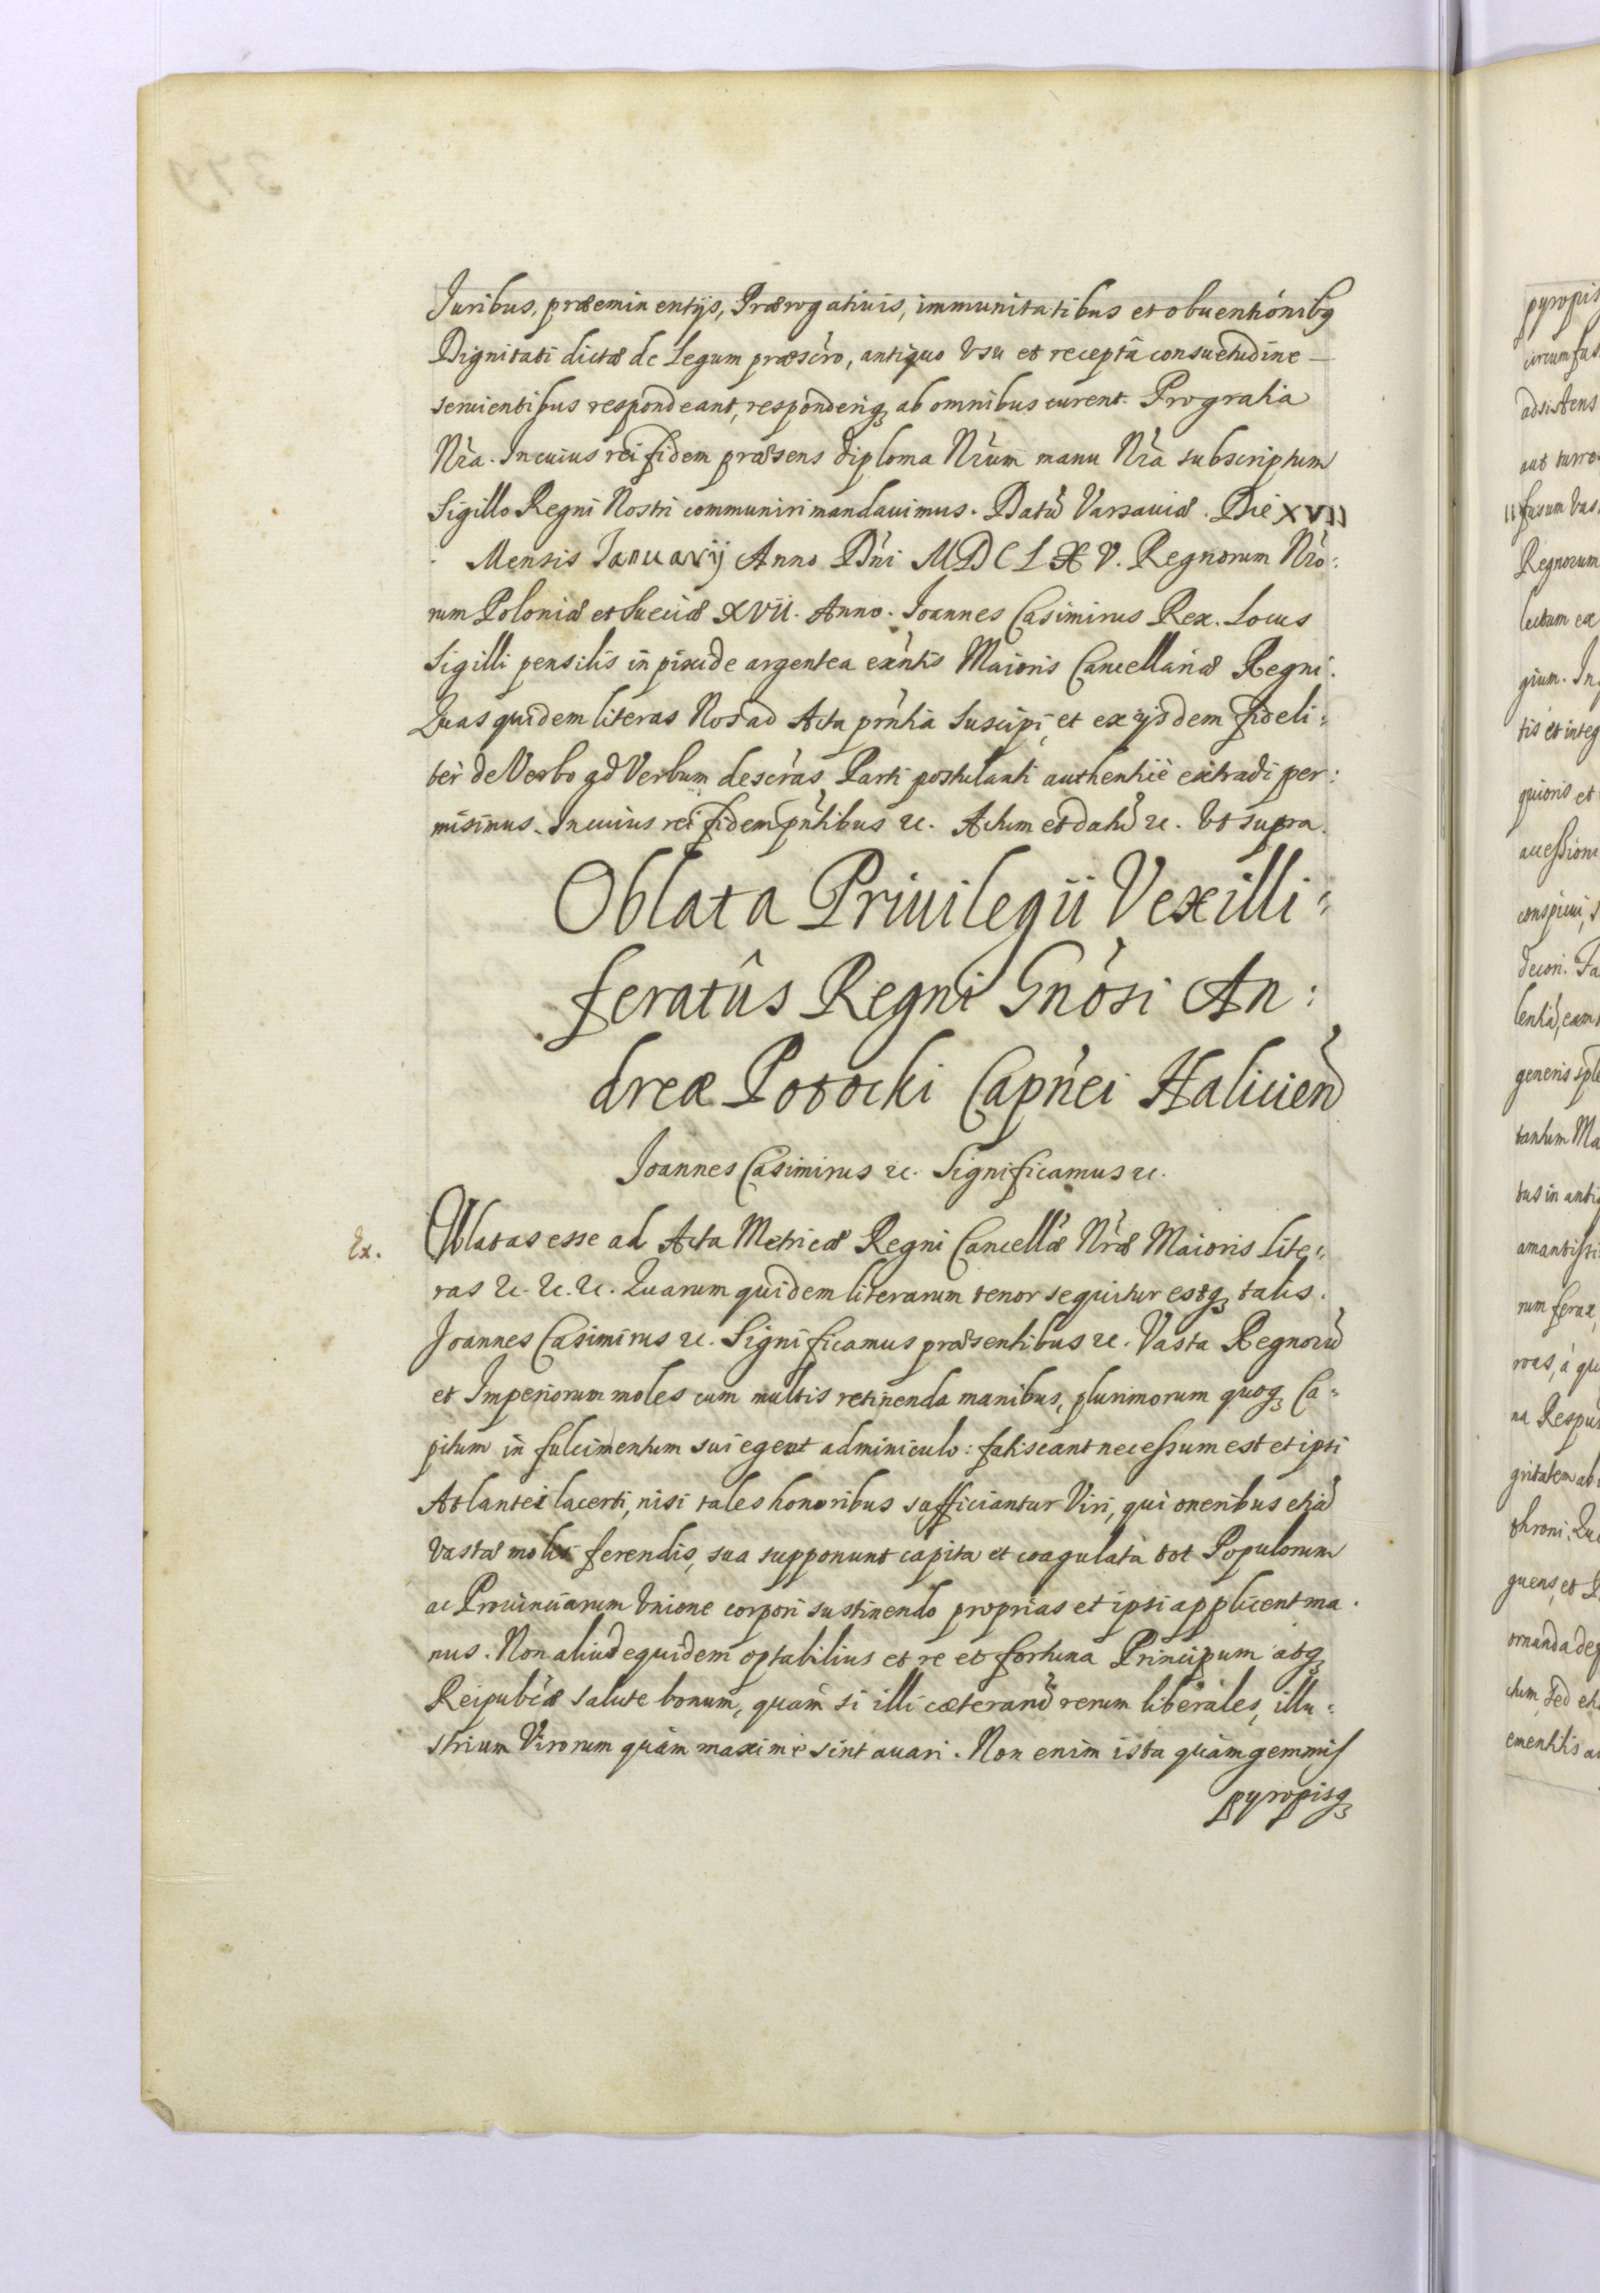 Juribus, præeminentijs, Prærogatiuis, immunitatibus et obuentionibꝰ
Dignitati dictæ de Legum præscr̃o, antiquo Vsu et recepta consuetudine
seruientibus respondeant, responderiqȝ ab omnibus curent. Pro gratia
Nr̃a. In cuius rei fidem præsens diploma Nr̃um manu Nr̃a subscriptum
Sigillo Regni Nostri communiri mandauimus. Datũ Varsauiæ. Die XVII
Mensis Januarij Anno Dn̄i MDCLXV. Regnorum Nr̃o:
rum Poloniæ et Sueciæ XVII. Anno. Joannes Casimirus Rex. Locus
Sigilli pensilis in pixide argentea exñtis Maioris Cancellariæ Regni.
Quas quidem literas Nos ad Acta prñtia suscipi, et ex ijsdem fideli:
ter de Verbo ad Verbum descr̃as, Parti postulanti authenticè extradi per:
misimus. In cuius rei fidem p̃ntibus &c. Actum et datũ &c. Vt supra.
Oblata Priuilegii Vexilli:
feratûs Regni Gn̄osi An:
dreæ Potocki Capñei Haliciens̃
Joannes Casimirus &c. Significamus &c.
Ex.
Oblatas esse ad Acta Metricæ Regni Cancellæ Nr̃æ Maioris Lite:
ras &c. &c. &c. Quarum quidem literarum tenor sequitur estqȝ talis.
Joannes Casimirus &c. Significamus præsentibus &c. Vasta Regnorũ
et Imperiorum moles cum multis retinenda manibus, plurimorum quoqȝ Ca:
pitum in fulcimentum sui egeat adminiculo: fatiscant necessum est et ipsi
Atlantei lacerti, nisi tales honoribus sufficiantur Viri, qui oneribus etiã
vastæ molis ferendis, sua supponunt capita et coagulata tot Populorum
ac Prouinciarum Vnione corpori sustinendo proprias et ipsi applicent ma.
nus. Non aliud equidem optabilius et re et fortuna Principum atqȝ
Reipubcæ salute bonum, quam si illi cæterarũ rerum liberales, illu:
strium Virorum quàm maximè sint auari. Non enim ista quàm gemmis
pyropisqȝ